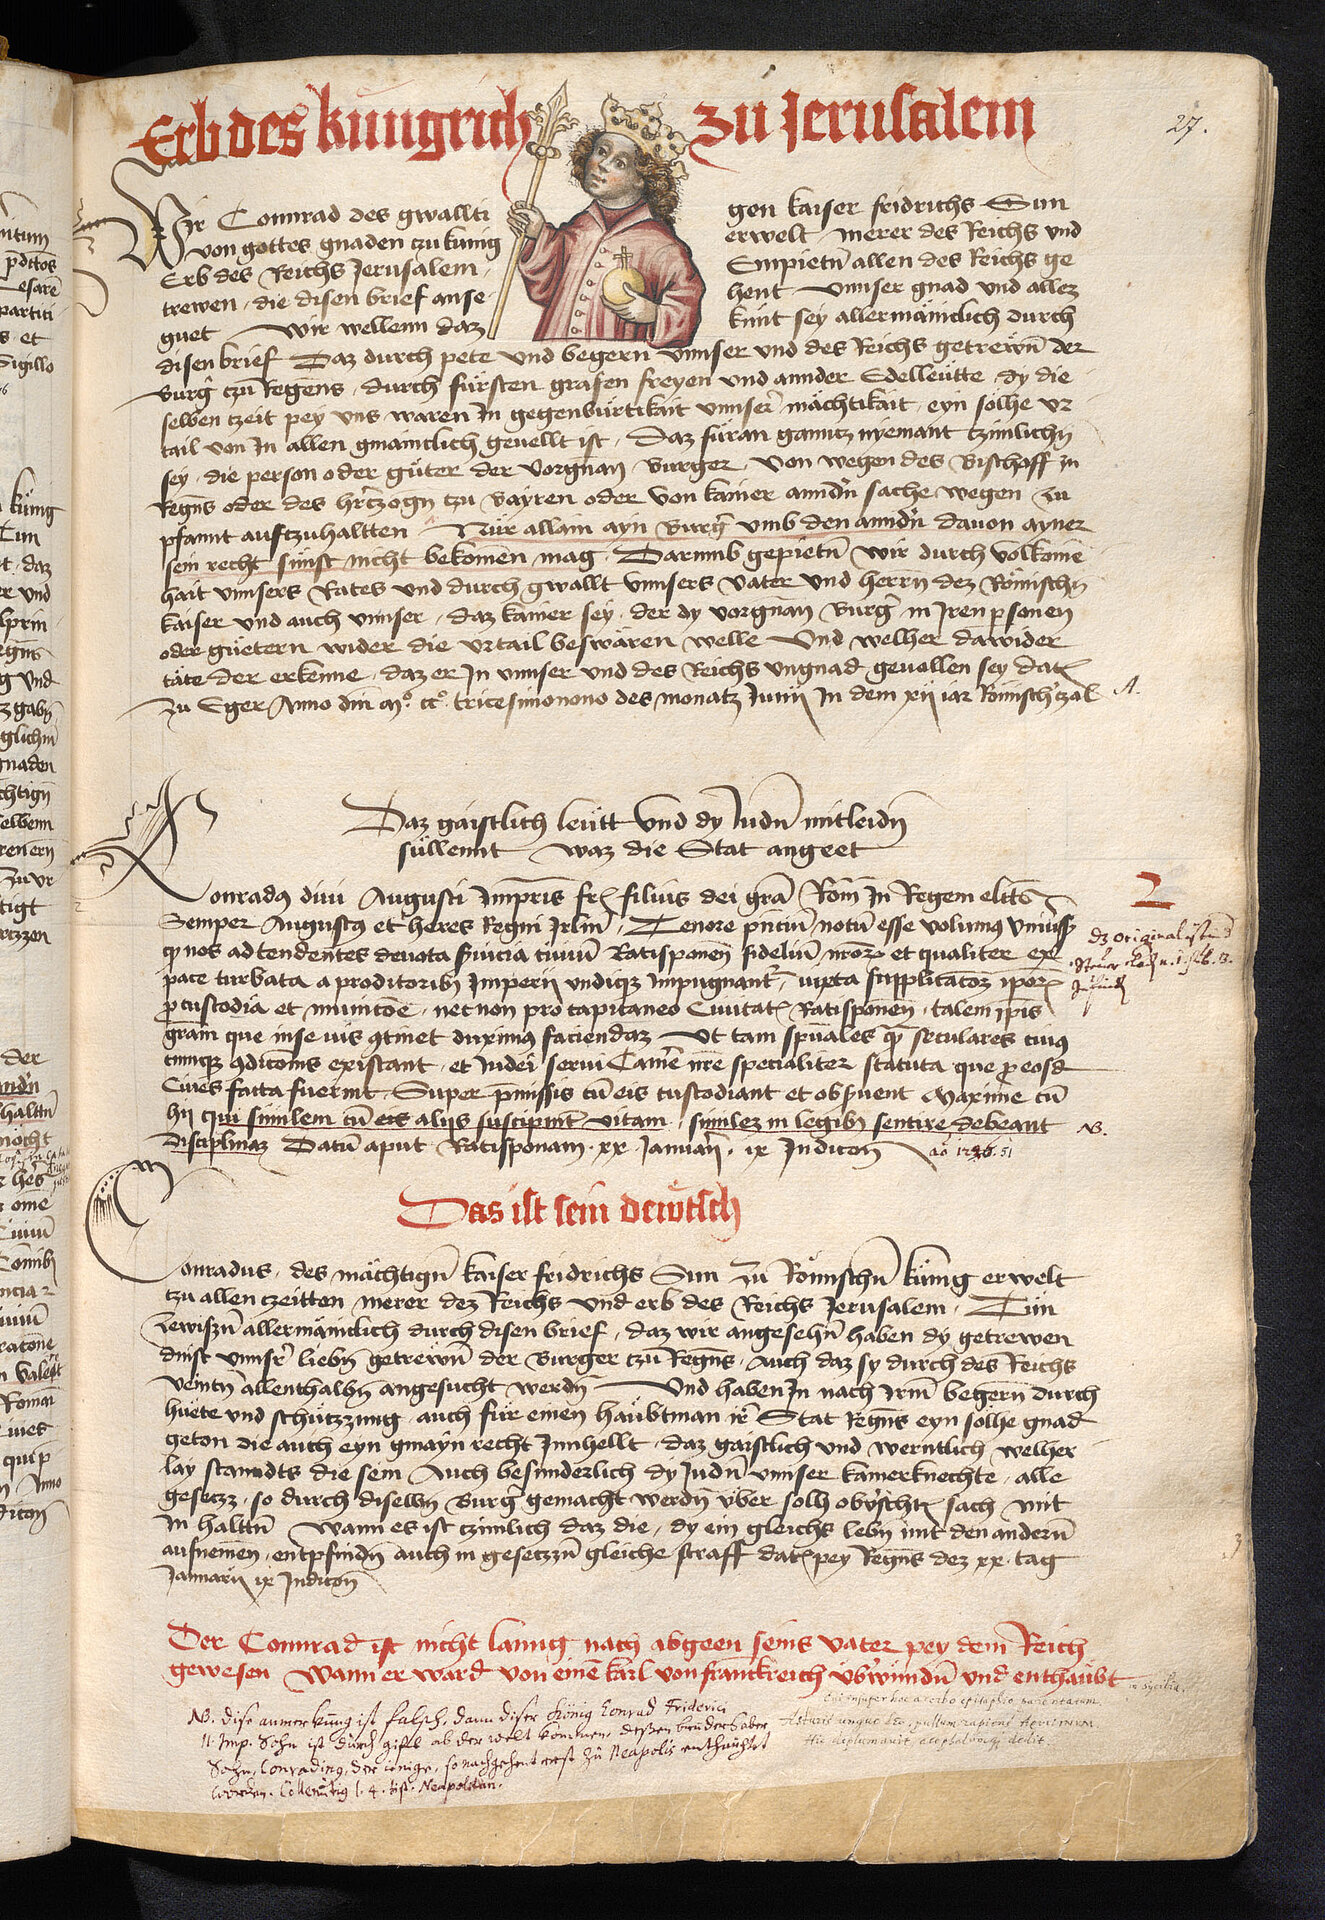 Erb des kungrich zu Jerusalem
27.
Wir Connrad des gwallti gen kaiser fridrichs Sun
von gottes gnaden czu kunig erwelt merer des Reichs vnd
Erb des Reichs Jerusalem, Empietn̄ allen des Reichs ge
trewen, die disen brief anse hent vnnser gnad vnd allez
guet wir wellenn daz kunt sey allermäniclich durch
disen brief Daz durch pete vnd begern vnnser vnd des Reichs getrewn̄ der
Burg̑ czu Regens, durch fürsten grafen freyen vnd annder Edelleutte, dy die
selben czeit pey vns waren In gegenbürtikait vnnseȓ mächtikait, eyn solhe vr
tail von In allen gmainclich geuellt ist, daz füran gannz nyemant czimlichn̄
sey, die person oder güter der vorgnan̄ Burger, von wegen des Bischoff zu
Regn̄s oder des hȓczogn̄ czu Bayren oder von kainer annd̑n sache wegen zu
pfannt aufczuhaltten Nur allain ayn Burg̑ vmb den annd̑n dauon ayner
sein recht sunst nicht bekomen mag. Darumb gepietn̄ wir durch volkome
hait vnnsers Rates vnd durch gwallt vnnsers vater vnd herrn dez Römischn̄
kaiser vnd auch vnnser, daz kainer sey, der dy vorgnan̄ Burg̑ in Iren p̱sonen
oder güetern wider die vrtail beswären welle Und welher dawider
täte der erkenne, daz er In vnnser vnd des Reichs vngnad geuollen sey dat̄
Zu Eger Anno dn̄i mo. cco. tricesimonono des monatz Junij In dem xij iar Römisch̑ czal
A.
Daz gaistlich leutt vnd dy Judn̄ mitleidn̄
süllennt waz die Stat angeet
Conradꝯ diui Augusti Imp̄ris fr̄ filius dei grā Rom̄ In Regem elct̄ꝯ
Semper Augustꝯ et heres Regni Irl̄m, Tenore pn̄ciū notū esse volumꝯ vniu̓s̄
ꝙ nos adtendentes deuota s̓uicia ciuiū Ratisponen̄ fideliū nr̄oꝝ et qualiter ex
pace turbata a proditoribꝯ Imperij vndiqꝫ Impugnant̑, iuxta supplicacōeꝫ ip̄oꝝ
ꝓ custodia et municōe, necnon pro capitaneo Ciuitat̄ Ratisponen̄, talem ip̄is
grām que in se iuis ꝯtinet duximꝯ faciendaꝫ Ut tam sp̄uales ꝙ̄ seculares cuiꝯ
cunqꝫ ꝯdicōnis existant, et Iudei serui Cam̄e nr̄e specialiter statuta, que ꝓ eosd̄
Ciues facta fuerint, Super p̄missis cū eis custodiant et obs̓uent Maxime cū
hij qui similem cū eis alijs suscipint̄ vitam, similez in legibꝯ sentire debeant
NB.
disciplinaꝫ Datū aput Ratisponam. xx. Januarȷ̄. ix Indicon̄
Das ist sein dewtsch
Conradus, des mächtign̄ kaiser fridrichs Sun zu Römischn̄ kunig erwelt
czu allen czeitten merer dez Reichs vnd erb des Reichs Jerusalem, Tun
zewiszn̄ allermäniclich durch disen brief, daz wir angesehn̄ haben dy getrewen
dinst vnnsȓ liebn̄ getrewn̄ der Burger czu Regn̄s, Auch daz sy durch des Reichs
veintn̄ allenthalbn̄ angesucht werdn̄ Und haben In nach Irm̄ begern durch
huete vnd schützzung auch für einen haubtman Iȓ Stat Regn̄s eyn solhe gnad
geton die auch eyn gmayn recht Innhellt, daz gaistlich vnd werntlich welher
lay stanndts die sein Auch besunderlich dy Judn̄ vnnser kamerknechte, alle
gesetzz, so durch diselbn̄ Burg̑ gemacht werdn̄ vber solh obg̓schr̄ sach mit
In haltn̄ Wann es ist czimlich daz die, dy ein gleichs lebn̄ mit den andern̄
aufnemen, entpfindn̄ auch in gesetzzn̄ gleiche straff dat̄ pey Regn̄s dez xx. tag
Januarij ix Indicon̄
Der Connrad ist nicht lanng nach abgeen seins vater pey dem Reich
gewesen Wann er ward von eine̅ Karl von franckreich vb̓wundn̄ vnd enthaubt
NB. dise anmerkung ist falsch, dann diser König Conrad Friderici
II Imp. Sohn ist durch gifft ab der welt kommen, deßsen bruder aber
Sohn, Conradinꝯ, der ienige, so nachgehent erst zu Neapolis enthaubtet
worden. Collenutiꝯ l. 4. hist. Neapolitan.